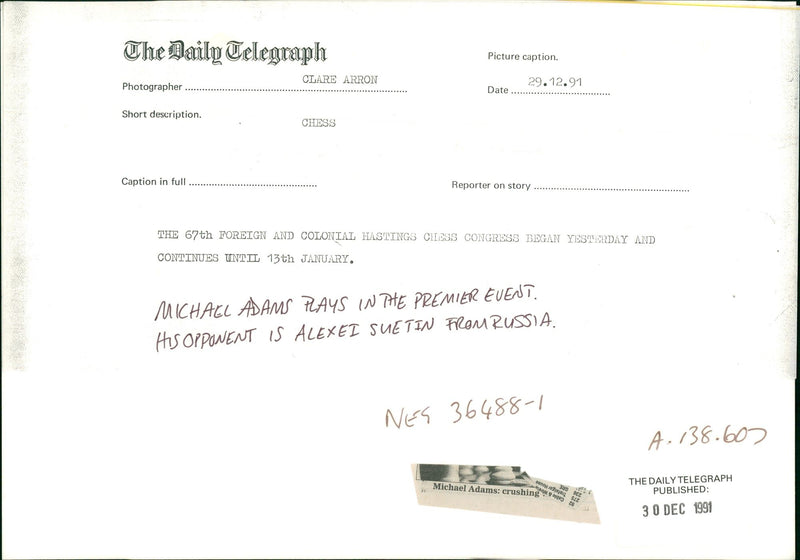 The Daily Telegraph
Picture caption.
Photographer CLARE ARRON
Date 29.12.91
Short description.
CHESS
Caption in full
Reporter on story
THE 67th FOREIGN AND COLONIAL HASTINGS CHESS CONGRESS BEGAN YESTERDAY AND
CONTINUES UNTIL 13th JANUARY.
MICHAEL ADAMS PLAYS IN THE PREMIER EVENT.
HIS OPPONENT IS ALEXEI SUETIN FROM RUSSIA.
NEG 36488-1
A.138.607
Michael Adams: crushing
THE DAILY TELEGRAPH
PUBLISHED:
30 DEC 1991